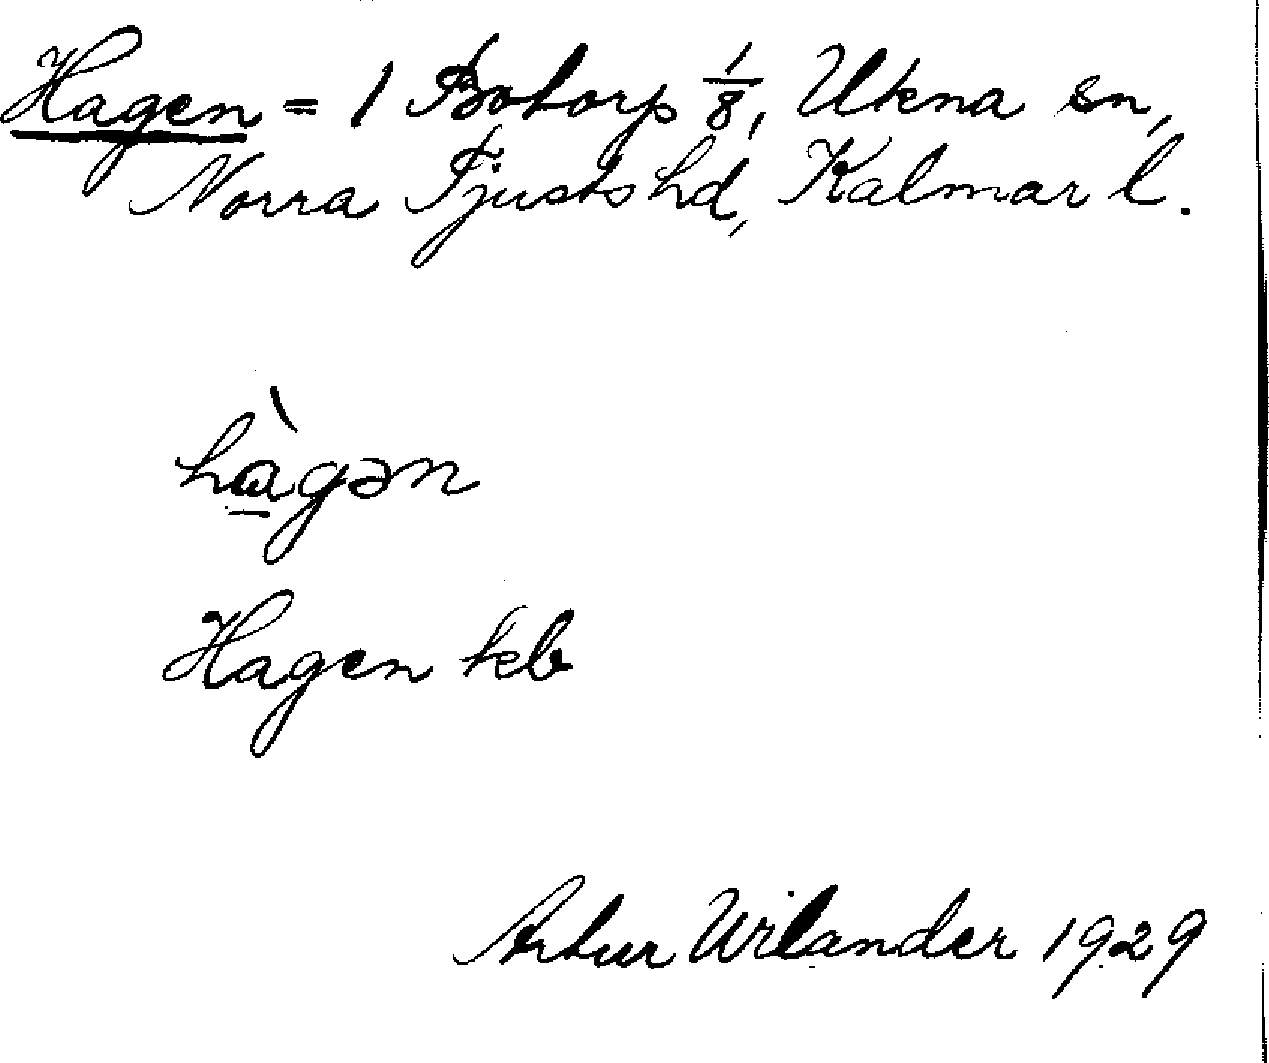 Hagen = 1 Botorp 1/8, Ukna sn,
Norra Tjusts hd, Kalmar l.
hàgən
Hagen kb
Artur Wilander 1929